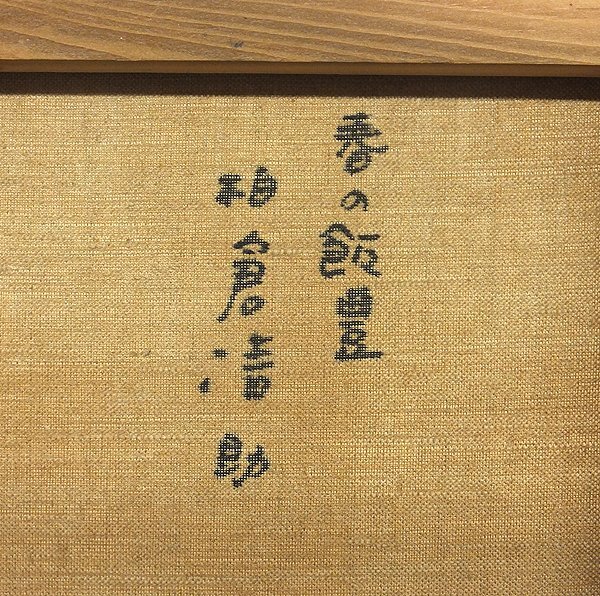 春の飯豊
柏倉清助